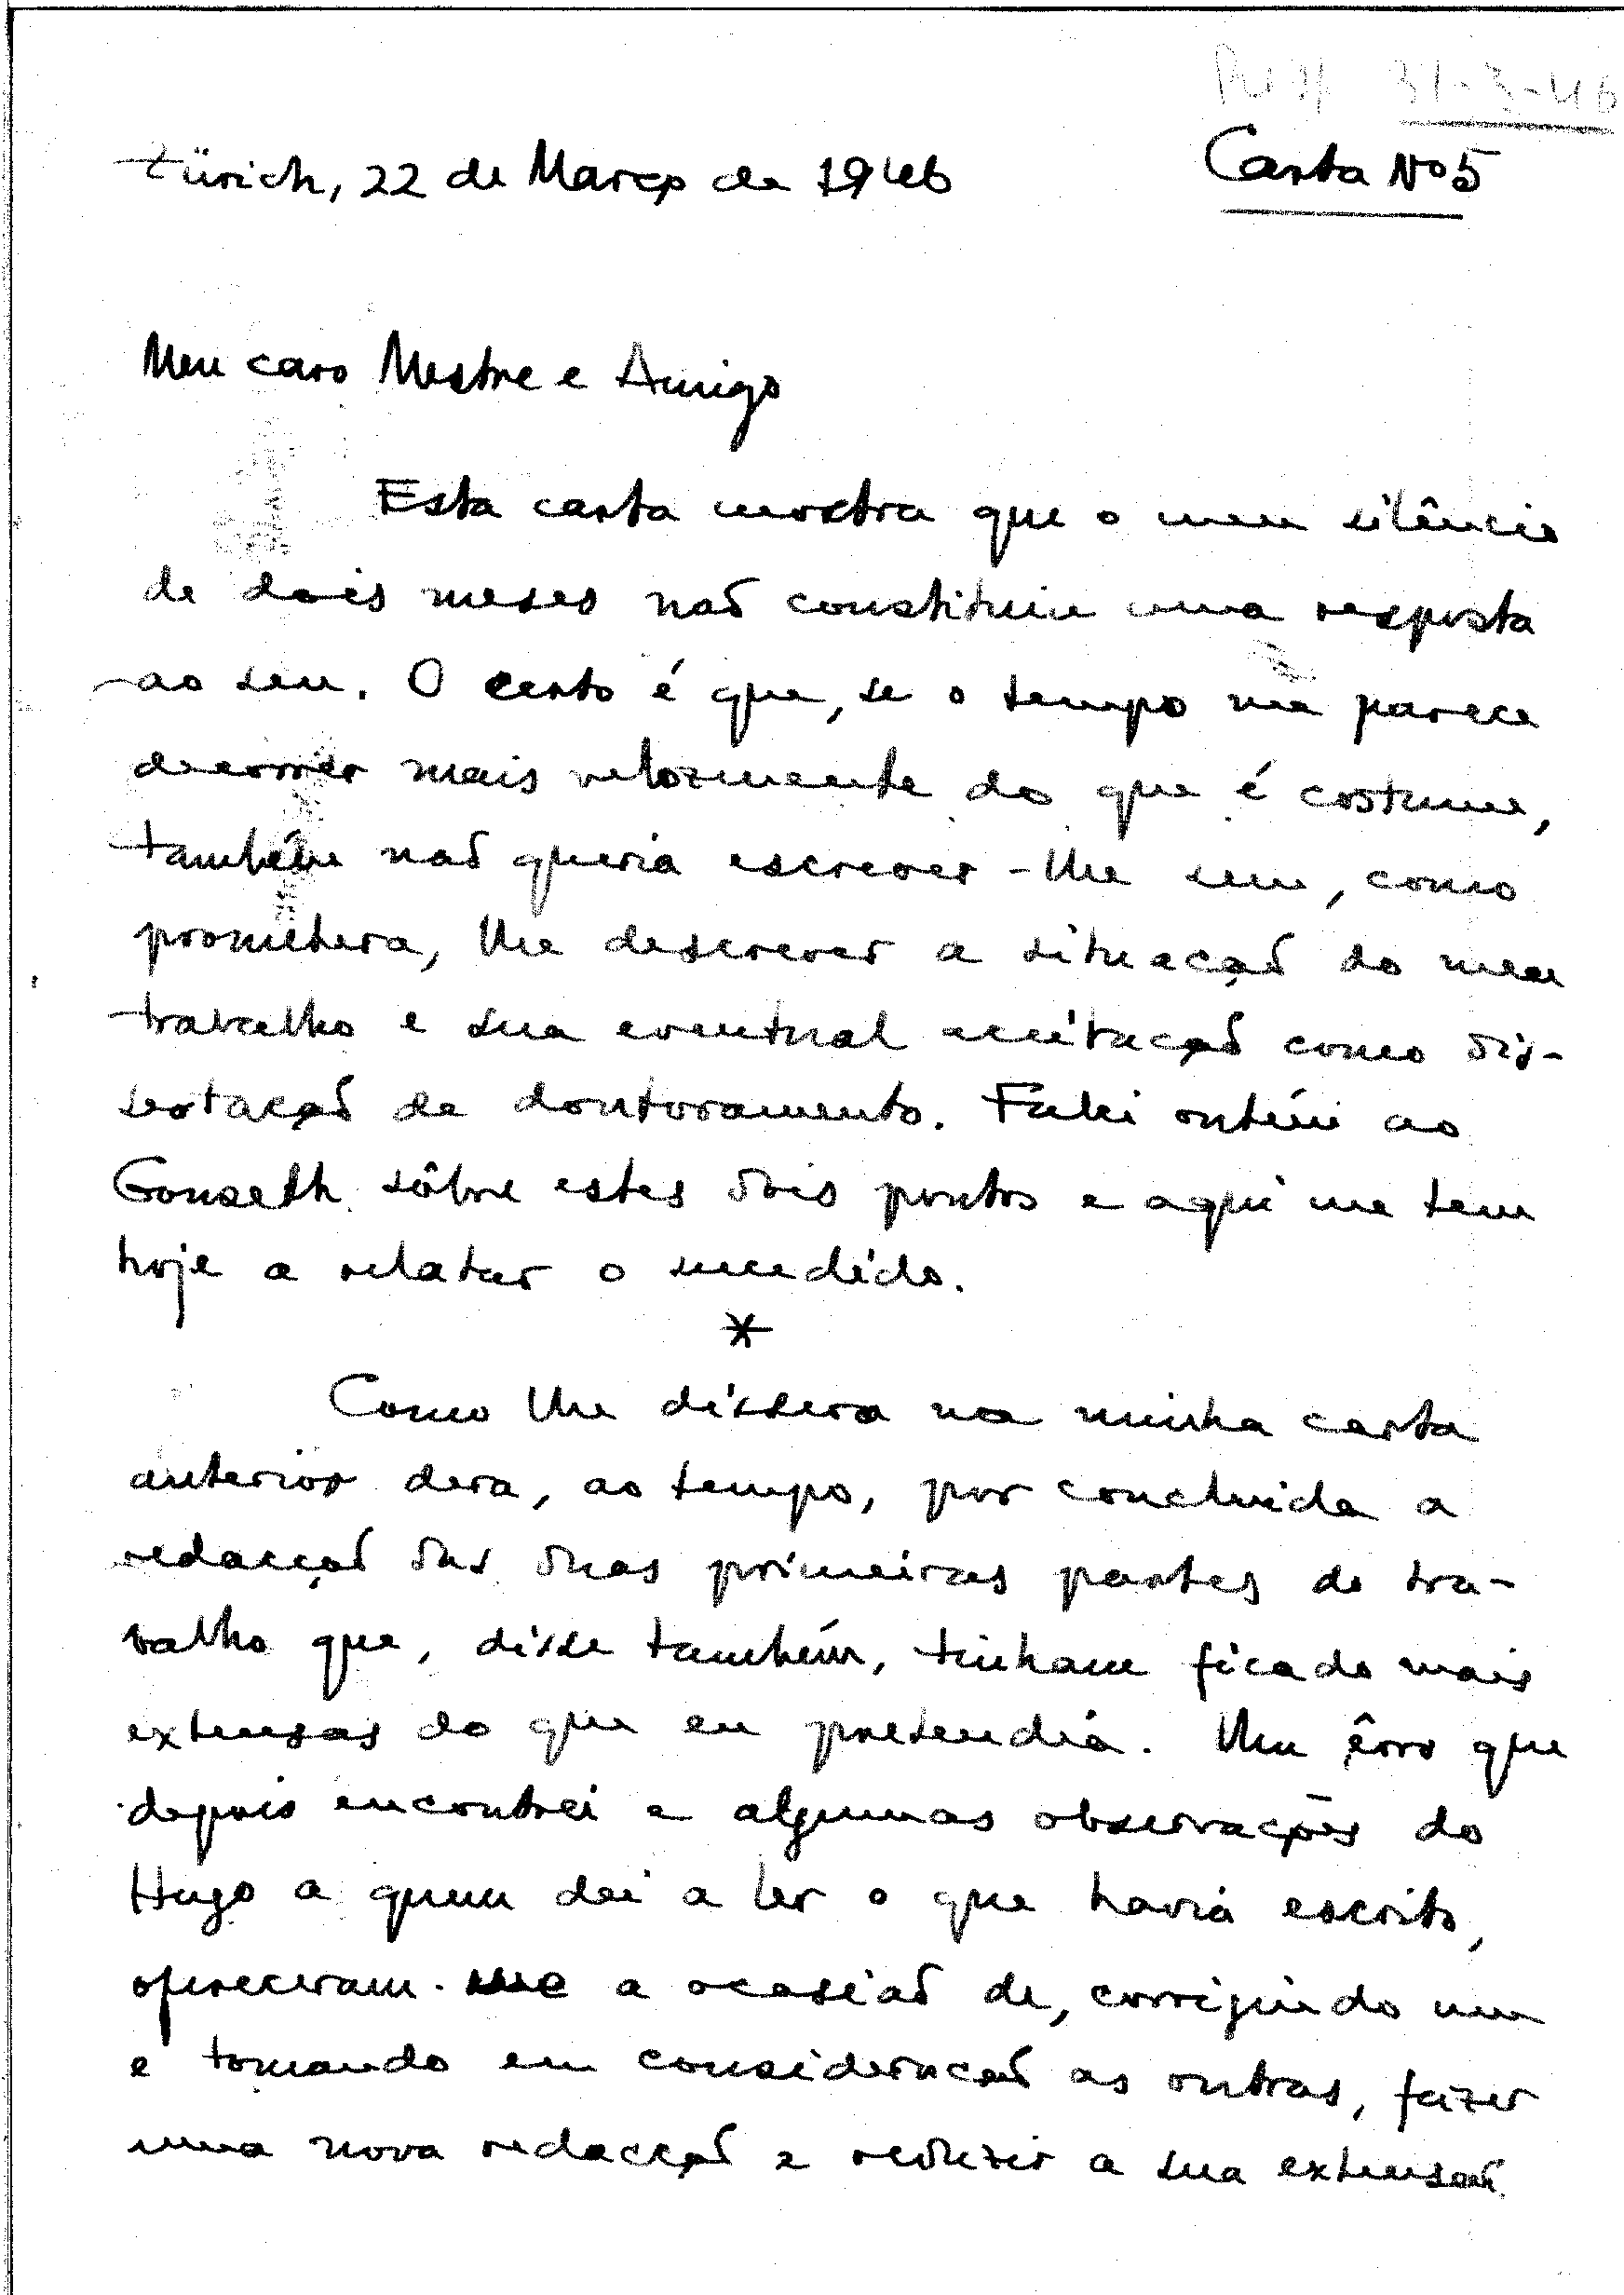 Resp 31-3-46
Zürich, 22 de Março de 1946
Carta Nº 5
Meu caro Mestre e Amigo
Esta carta mostra que o meu silêncio
de dois meses não constituiu uma resposta
ao seu. O certo é que, se o tempo me parece
decorrer mais velozmente do que é costume,
também não queria escrever-lhe sem, como
prometera, lhe descrever a situação do meu
trabalho e sua eventual aceitação como dis-
sertação de doutoramento. Falei ontem ao
Gonseth sôbre estes dois pontos e aqui me tem
hoje a relatar o sucedido.
*
Como lhe dissera na minha carta
anterior dera, ao tempo, por concluida a
redacção das duas primeiras partes do tra-
balho que, disse também, tinham ficado mais
extensas do que eu pretendia. Um êrro que
depois encontrei e algumas observações do
Hugo a quem dei a ler o que havia escrito,
ofereceram-me a ocasião de, corrigindo um
e tomando em consideração as outras, fazer
uma nova redacção e reduzir a sua extensão.